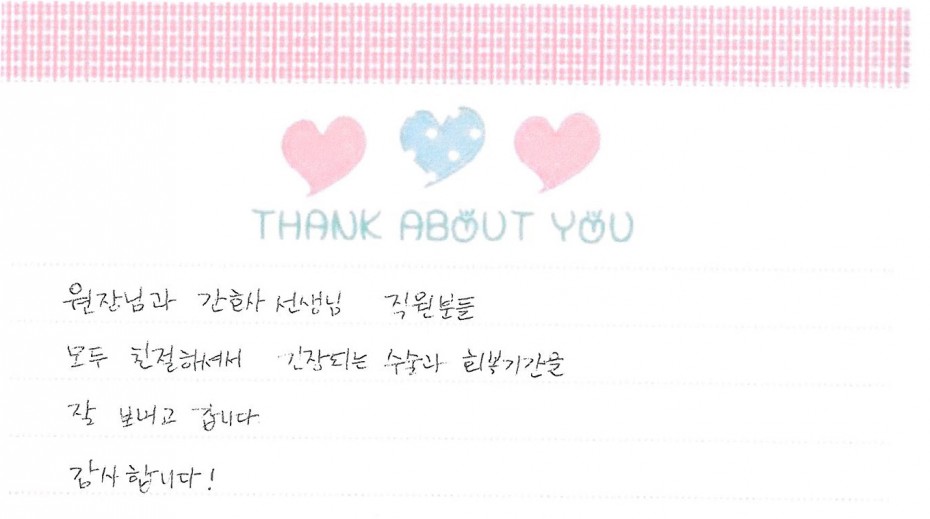 THANK ABOUT YOU
원장님과 간호사 선생님 직원분들
모두 친절하셔서 긴장되는 수술과 회복기간을
잘 보내고 갑니다
감사합니다!